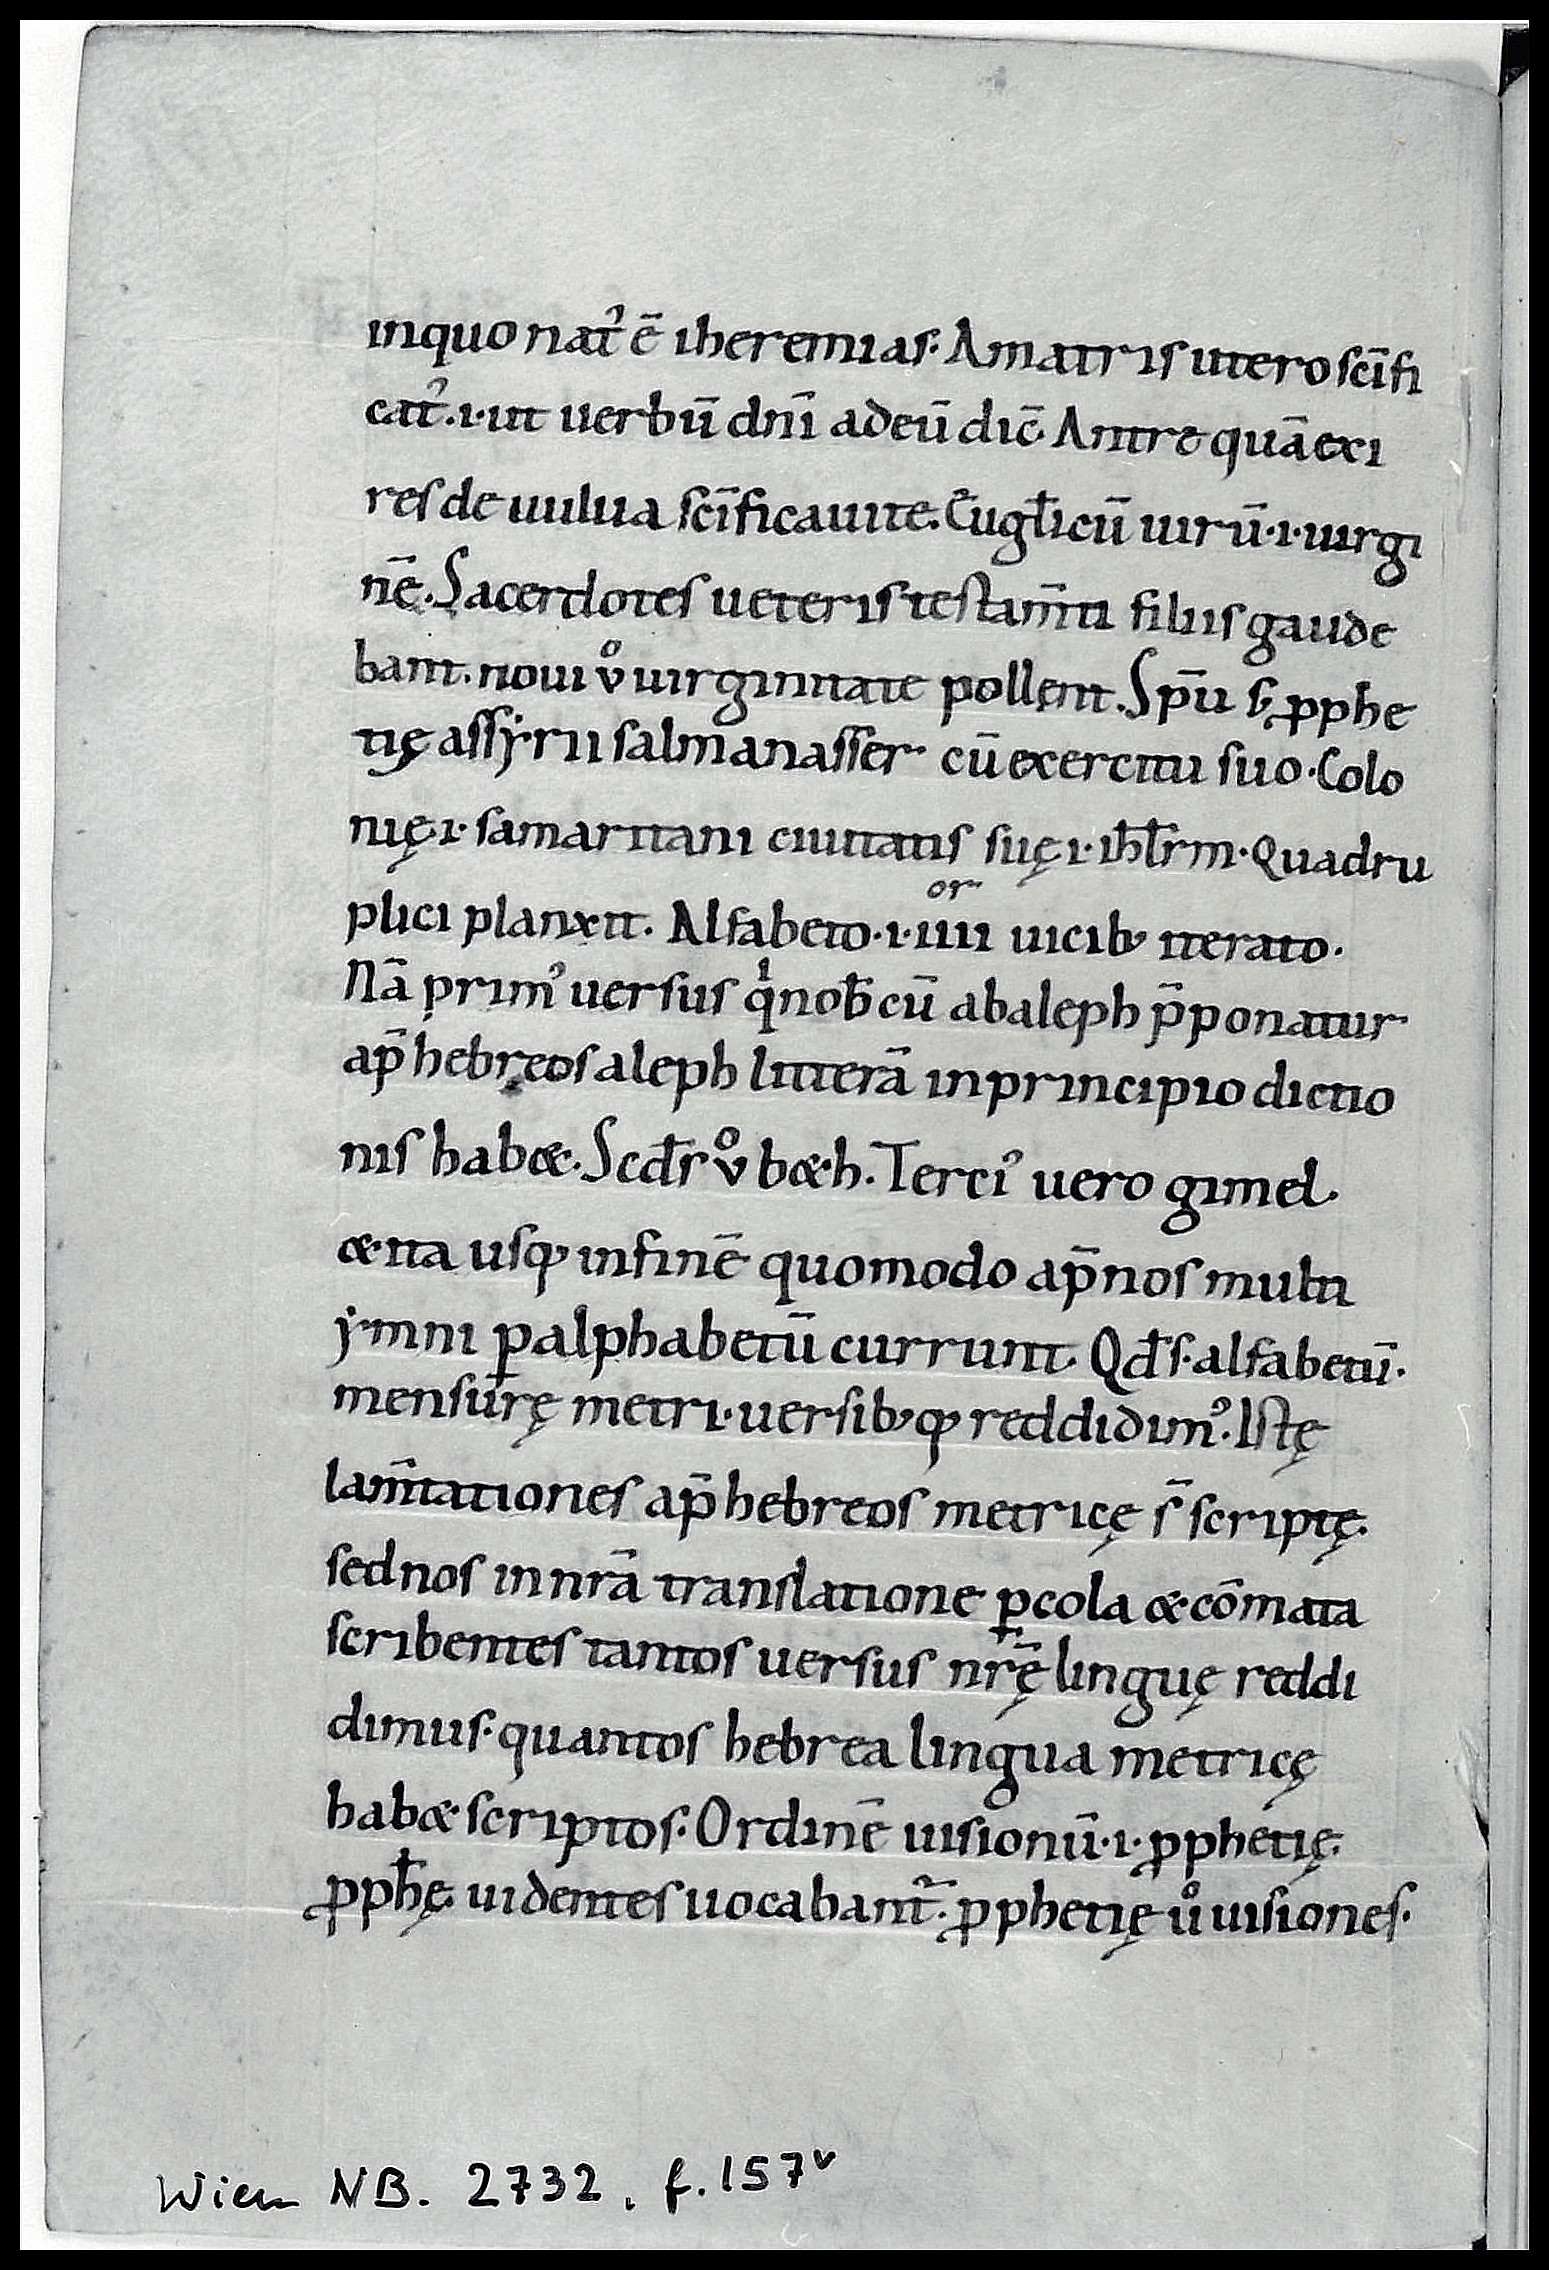 inquo nat᾽ ē iheremias· Amatris utero sc̄ifi
cat᾽· ·i· ut uerbū dnī adeū dic̄· Antre quā exi
res de uulua sc̄ificauite. Eug̅licū uirū ·i· uirgi
nē. Sacerdotes ueteris testam̄ti filiis gaude
bant. noui v° uirginitate pollent. Sp̄u s; ꝓphe
tię assẏrii salmanasser cū exercitu suo· Colo
nię ·i· samaritani ciuitatis suę ·i· ih̄l̄rm· Quadru
or
plici planxit. Alfabeto ·i· iiii uicib; iterato·
Nā prim᾽ uersus qⁱ nob̄ cū abaleph p̄ponatur
ap̄ hebreos aleph litterā inprincipio dictio
nis hab&. Scd̄s v° b&h. Terci᾽ uero gimel·
&ita usq; infinē quomodo ap̄ nos multi
ẏmni ꝑalphabetū currunt. Qd̄ s· alfabetū·
mensurę metri· uersib;q; reddidim᾽· Istę
lam̄tationes ap̄ hebreos metricę s̄ scriptę.
sednos innr̄ā translatione ꝑcola & cōmata
scribentes tantos uersus nr̄ę linguę reddi
dimus· quantos hebrea lingua metricę
hab& scriptos· Ordinē uisionū ·i· ꝓphetię.
ꝓph̄ę uidentes uocabant᷑· ꝓphetię u° uisiones·
Wien NB. 2732, f. 157ᵛ